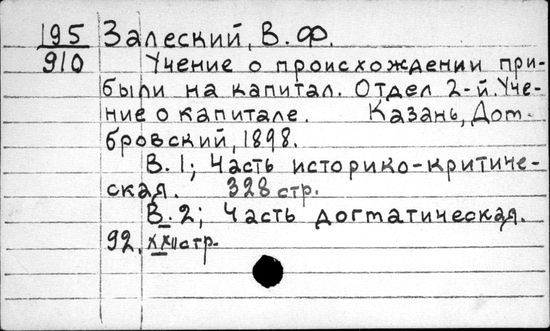 195 Залеский, В. Ф.
910 Учение о происхождении при-
были на капитал. Отдел 2-й. Уче-
ние о капитале. Казань, Дом-
бровский, 1898.
В. 1; Часть историко-критиче-
ская. 328 стр.
В. 2; Часть догматическая.
92, XXII стр.